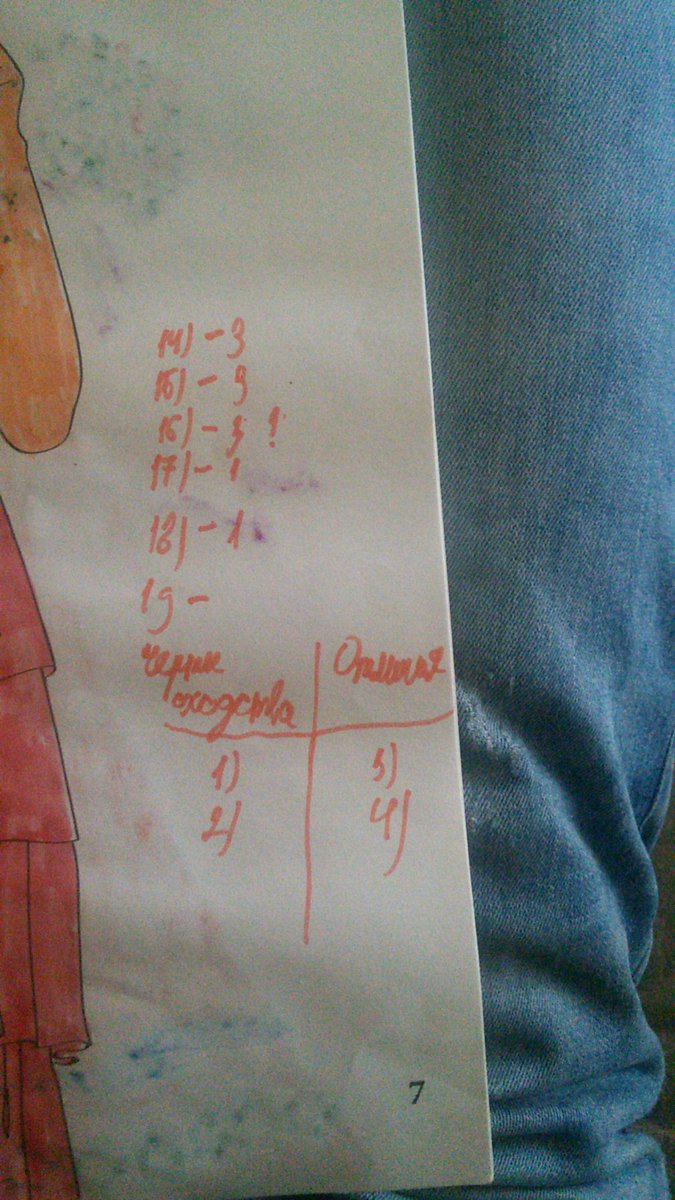 14) - 3
15) - 3
16) - 3 !
17) - 1
18) - 1
19 -
Черты Отличия
сходства
1) 3)
2) 4)
7